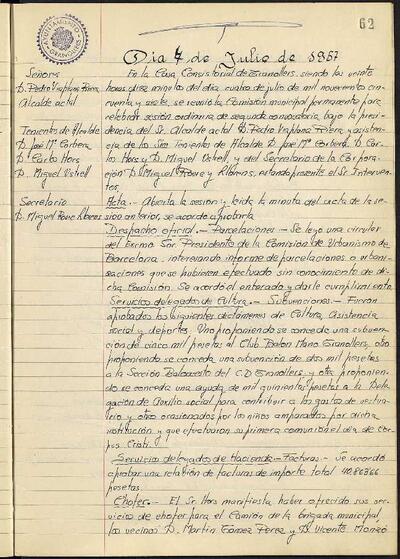 AYUNTAMIENTO
GRANOLLERS
62
Dia 4 de Julio de 1957
Señores
D. Pedro Viaplana Riera
Alcalde actal
Tenientes de Alcalde
D. José Mª Corbera
D. Carlo Hors
D. Miguel Ustrell
Secretario
D. Miguel Roure Alberas
En la Casa Consistorial de Granollers, siendo las veinte
horas diez minutos del dia cuatro de julio de mil novecientos cin-
cuenta y siete, se reunió la Comisión municipal permanente para
celebrar sesion ordinaria de segunda convocatoria, bajo la presi-
dencia del Sr. Alcalde actal D. Pedro Viaplana Riera y asisten-
cia de los Sres Tenientes de Alcalde D. José Mª Corbera, D. Car-
los Hors y D. Miguel Ustrell, y del Secretario de la Corpora-
ción D. Miguel Roure y Alberas, estando presente el Sr. Interven-
tor.
Acta.- Abierta la sesion y leida la minuta del acta de la se-
sion anterior, se acordo aprobarla
Despacho oficial.- Parcelaciones.- Se leyo una circular
del Excmo Sor. Presidente de la Comisión de Urbanismo de
Barcelona, interesando informe de parcelaciones o urbani-
zaciones que se hubiesen efectuado sin conocimiento de di-
cha Comisión. Se acordó el enterado y darle cumplimiento
Servicios delegados de Cultura.- Subvenciones.- Fueron
aprobados los siguientes dictámenes de Cultura, Asistencia
social y deportes. Uno proponiendo se conceda una subven-
cion de cinco mil pesetas al Club Balon Mano Granollers, otro
proponiendo se conceda una subvención de dos mil pesetas
a la Sección Baloncesto del C.D. Granollers, y otro proponien-
do se conceda una ayuda de mil quinientas pesetas a la Dele-
gación de Auxilio social para contribuir a los gastos de vestua-
rio y otros ocasionados por los niños amparados por dicha
institución y que efectuaron su primera comunión el dia de Cor-
pus Cristi.
Servicios delegados de Hacienda.- Facturas.- Se acordó
aprobar una relatión de facturas de importe total 40.863'66
pesetas.
Chofer.- El Sr. Hors manifiesta, haber ofrecido sus ser-
vicios de chofer para el Camión de la brigada municipal
los vecinos D. Martin Gómez Perez y D. Vicente Monzó